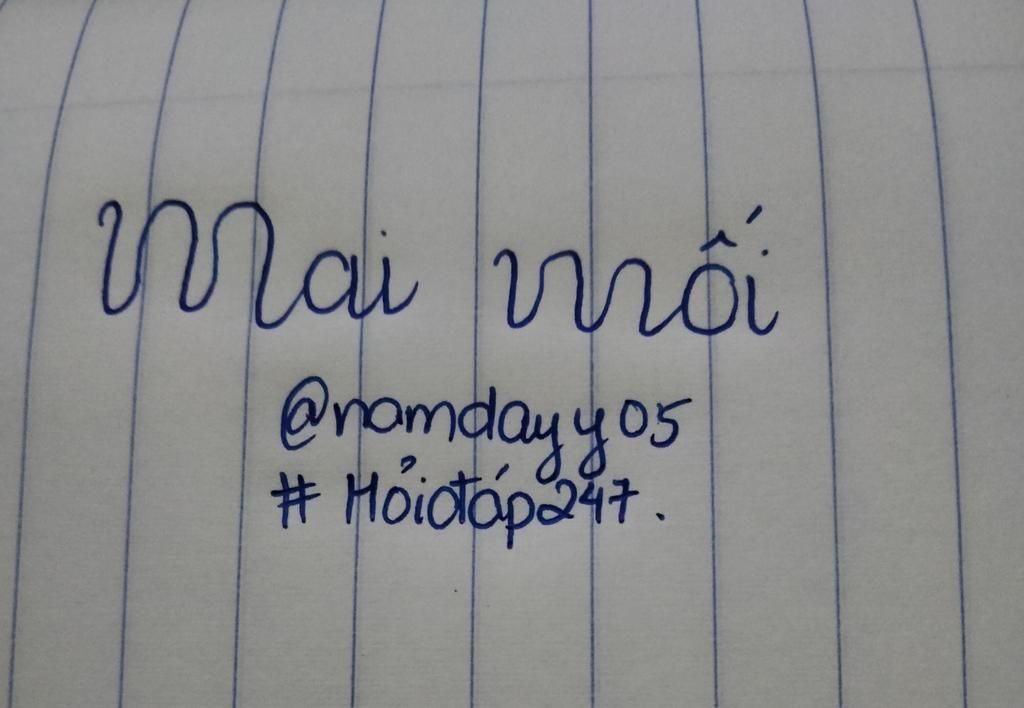 Mai mối
@namdayy05
# Hỏiđáp247.